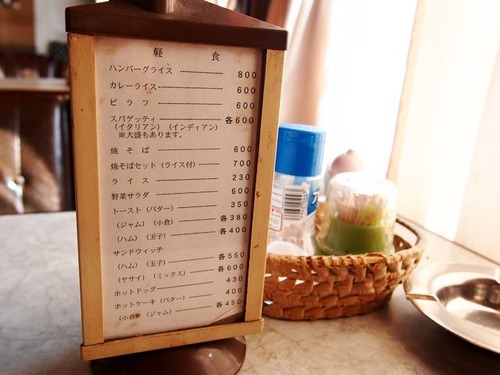 軽 食
ハンバーグライス 800
カレーライス 600
ピラフ 600
スパゲッティ 各600
(イタリアン) (インディアン)
※大盛もあります。
焼そば 600
焼そばセット(ライス付) 700
ライス 230
野菜サラダ 600
トースト(バター) 350
(ジャム) (小倉) 各380
(ハム) (玉子) 各400
サンドウィッチ
(ハム) (玉子) 各550
(ヤサイ) (ミックス) 各600
ホットドッグ 430
ホットケーキ(バター) 400
(小倉) (ジャム) 各450